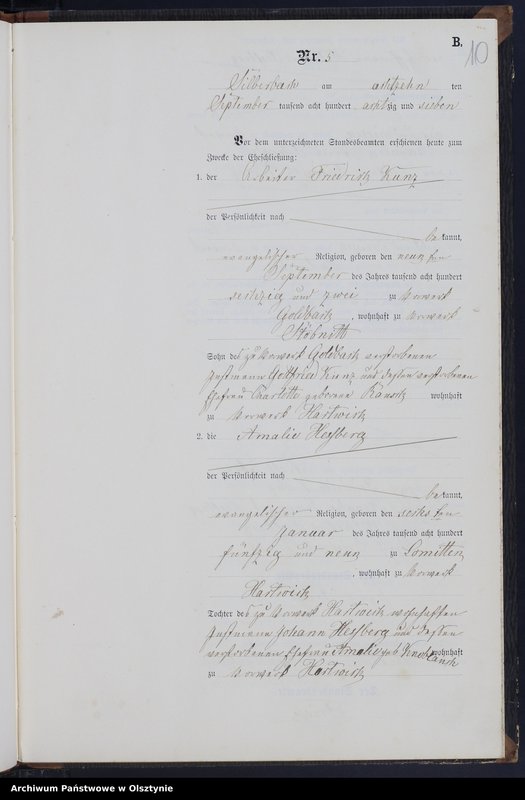 B.
10
Nr. 5
Silberbach am achtzehn ten
September tausend acht hundert achtzig und sieben
Vor dem unterzeichneten Standesbeamten erschienen heute zum
Zwecke der Eheschließung:
1. der Arbeiter Friedrich Kunz
der Persönlichkeit nach
be kannt,
evangelischer Religion, geboren den neun ten
September des Jahres tausend acht hundert
sechzig und zwei zu Vorwerk
Goldbach, wohnhaft zu Vorwerk
Stöbnitt
Sohn des zu Vorwerk Goldbach verstorbenen
Instmann Gottfried Kunz und dessen verstorbenen
Ehefrau Charlotte geborene wohnhaft
zu Vorwerk Hartwich
2. die Amalie Heyberg
der Persönlichkeit nach
be kannt,
evangelischer Religion, geboren den sechs ten
Januar des Jahres tausend acht hundert
fünfzig und neun zu Lomitten
, wohnhaft zu Vorwerk
Hartwich
Tochter des zu Vorwerk Hartwich wohnhaften
Instmann Johann Heyberg und dessen
verstorbenen Ehefrau Amalie geb. wohnhaft
zu Vorwerk Hartwich
Archiwum Państwowe w Olsztynie